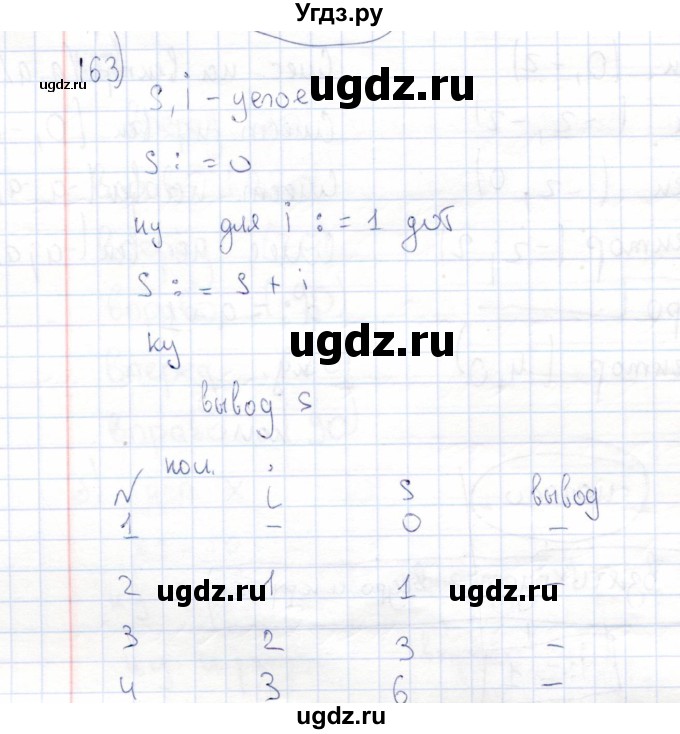 Угдз.ру
163)
ugdz.ru
S, i - целое
ugdz.ru
S := 0
нц для i := 1 до 6
S := S + i
кц
ugdz.ru
вывод S
N ком. i S вывод
1 - 0 -
2 1 1 -
ugdz.ru ugdz.ru
3 2 3 -
4 3 6 -
ugdz.ru